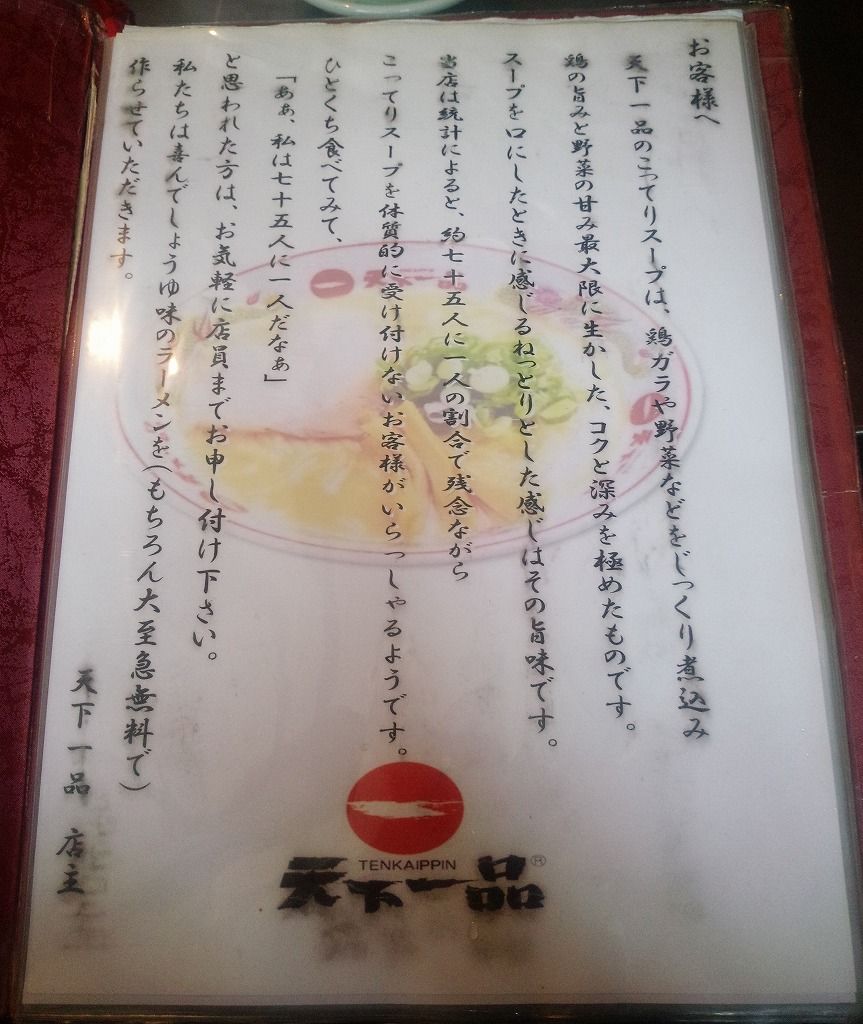 お客様へ
天下一品のこってりスープは、鶏ガラや野菜などをじっくり煮込み
鶏の旨みと野菜の甘み最大限に生かした、コクと深みを極めたものです。
スープを口にしたときに感じるねっとりとした感じはその旨味です。
当店は統計によると、約七十五人に一人の割合で残念ながら
こってりスープを体質的に受け付けないお客様がいらっしゃるようです。
ひとくち食べてみて、
「あぁ、私は七十五人に一人だなぁ」
と思われた方は、お気軽に店員までお申し付け下さい。
私たちは喜んでしょうゆ味のラーメンを(もちろん大至急無料で)
作らせていただきます。
天下一品 店主
天下一品
TENKAIPPIN
天下一品®